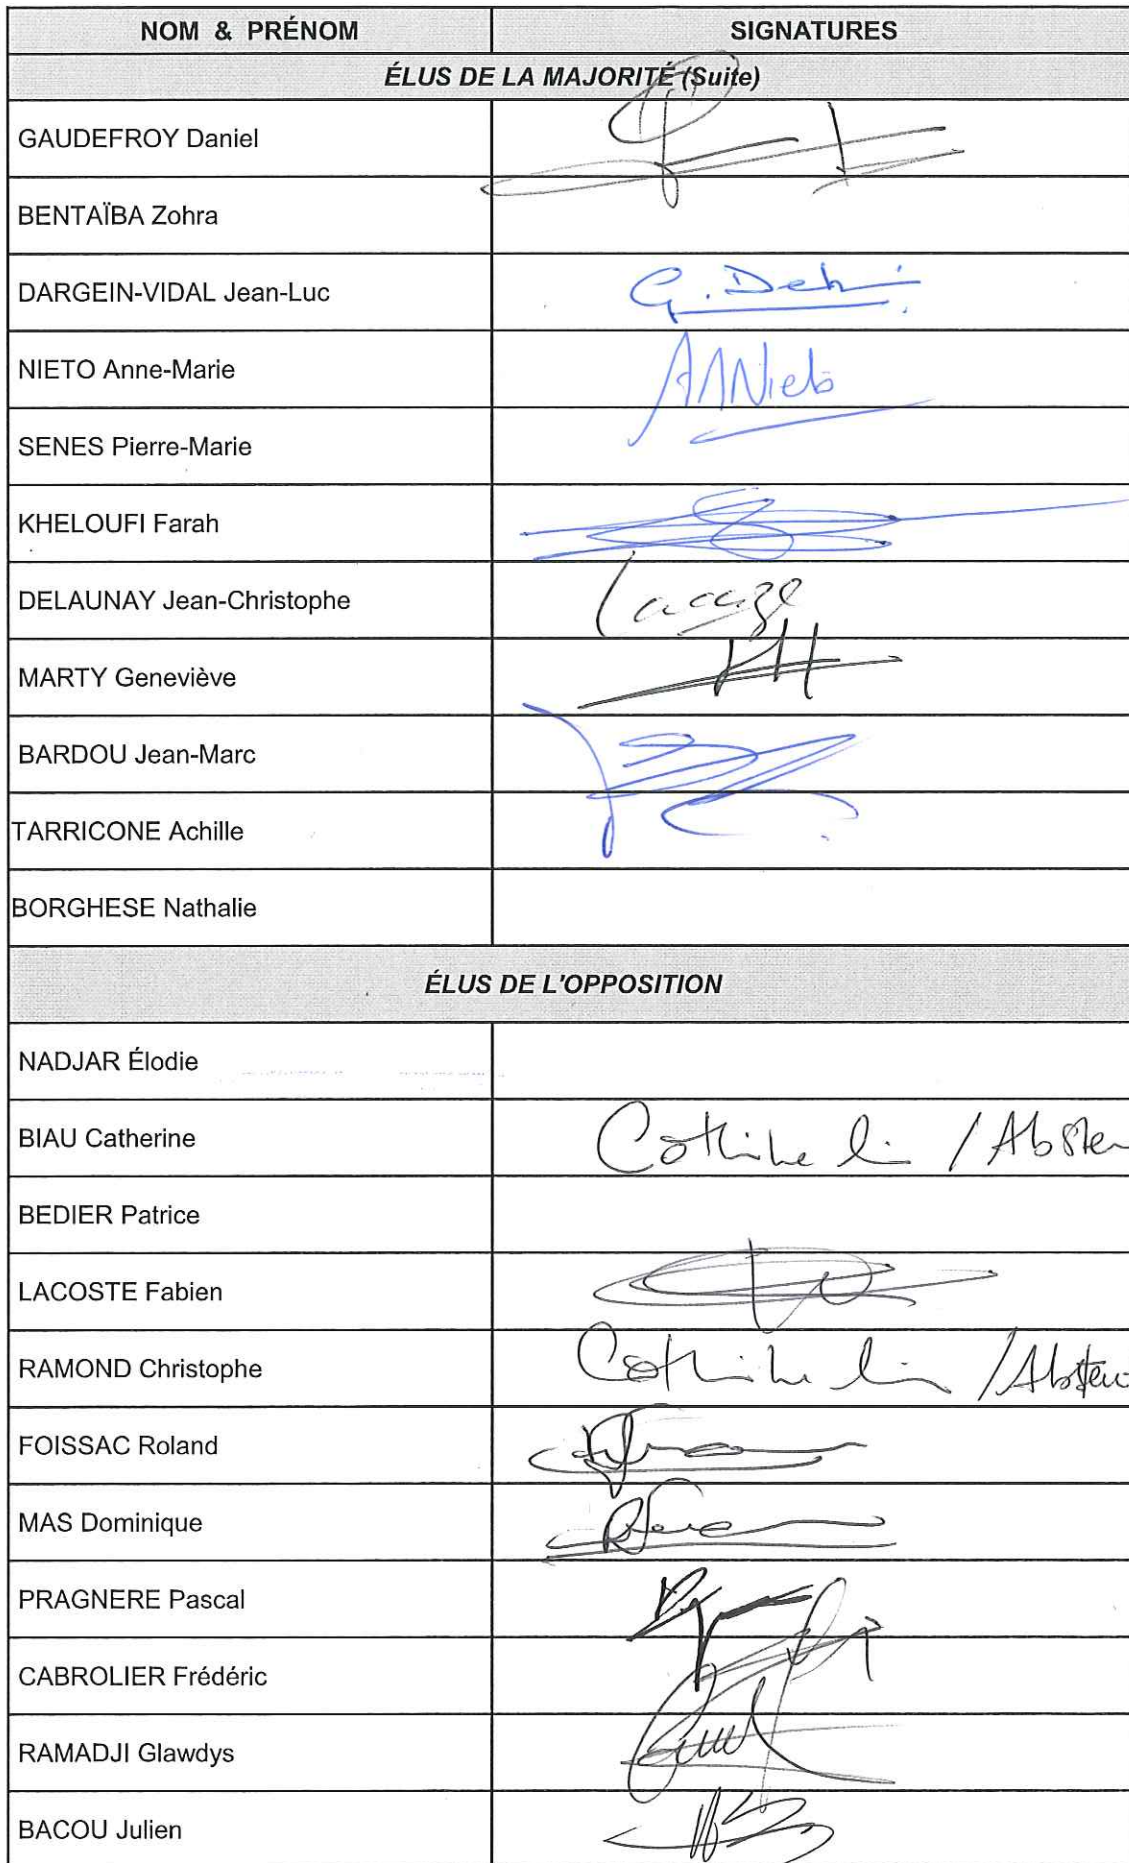 NOM & PRÉNOM SIGNATURES
ÉLUS DE LA MAJORITÉ (Suite)
GAUDEFROY Daniel
BENTAÏBA Zohra
DARGEIN-VIDAL Jean-Luc
NIETO Anne-Marie AMNieto
SENES Pierre-Marie
KHELOUFI Farah
DELAUNAY Jean-Christophe
MARTY Geneviève
BARDOU Jean-Marc
TARRICONE Achille
BORGHESE Nathalie
ÉLUS DE L'OPPOSITION
NADJAR Élodie
BIAU Catherine
BEDIER Patrice
LACOSTE Fabien
RAMOND Christophe
FOISSAC Roland
MAS Dominique
PRAGNERE Pascal
CABROLIER Frédéric
RAMADJI Glawdys
BACOU Julien